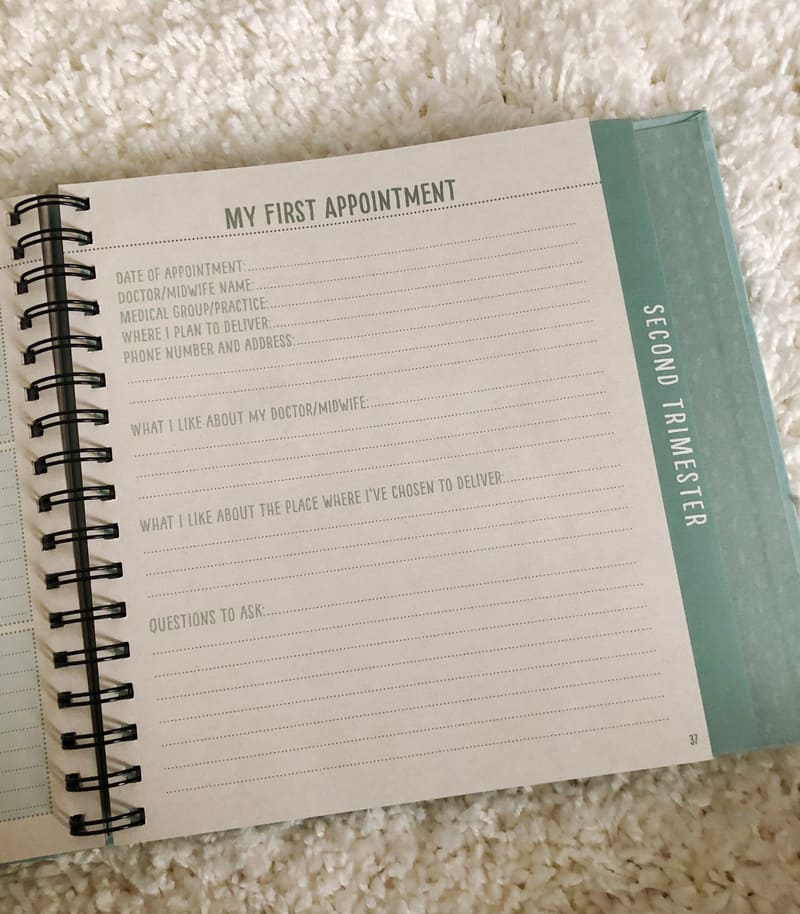 MY FIRST APPOINTMENT
DATE OF APPOINTMENT:
DOCTOR/MIDWIFE NAME:
MEDICAL GROUP/PRACTICE:
WHERE I PLAN TO DELIVER:
PHONE NUMBER AND ADDRESS:
WHAT I LIKE ABOUT MY DOCTOR/MIDWIFE:
WHAT I LIKE ABOUT THE PLACE WHERE I'VE CHOSEN TO DELIVER:
QUESTIONS TO ASK:
37
SECOND TRIMESTER